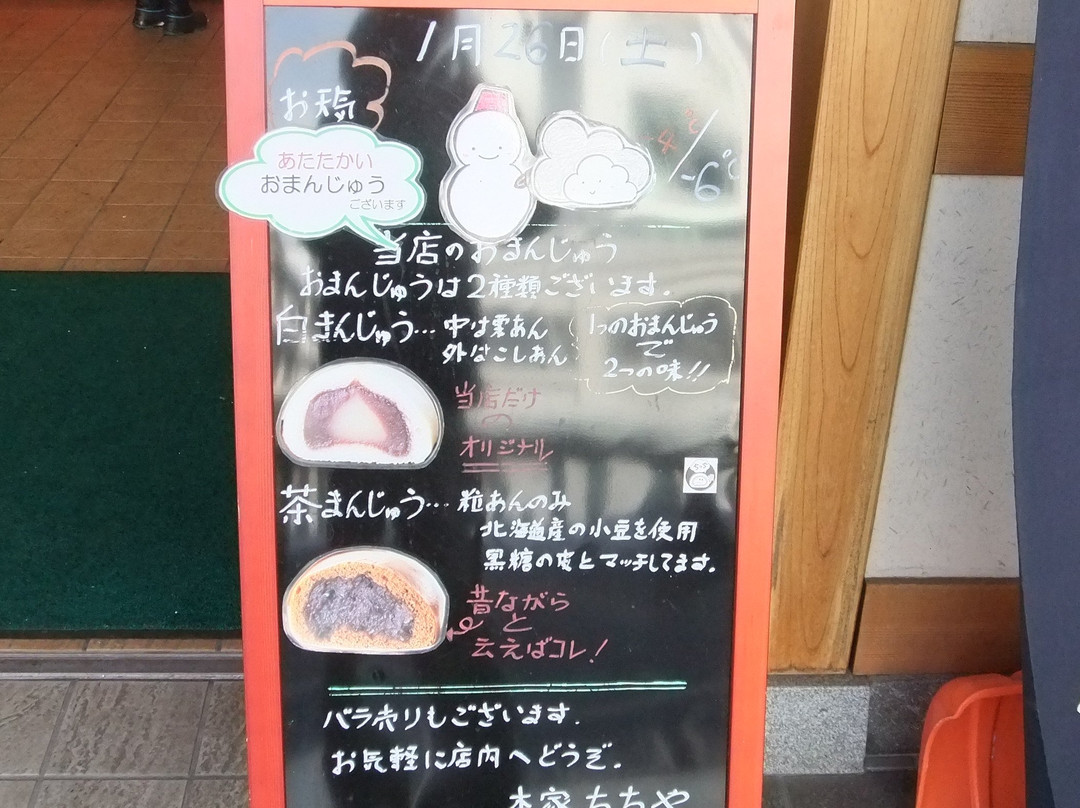 1月26日(土)
お天気
-4℃/-6℃
あたたかい
おまんじゅう
ございます
当店のおまんじゅう
おまんじゅうは2種類ございます。
白まんじゅう…中は栗あん
外はこしあん
1つのおまんじゅう
で
2つの味!!
当店だけ
の
オリジナル
茶まんじゅう…粒あんのみ
北海道産の小豆を使用
黒糖の皮とマッチしてます。
昔ながら
と
云えばコレ!
バラ売りもございます.
お気軽に店内へどうぞ。
本家ちちや